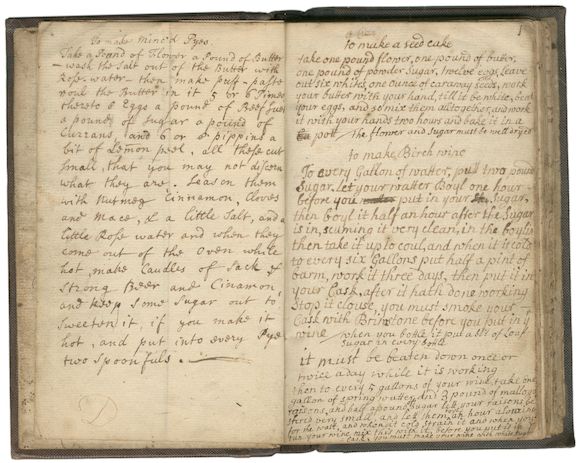 To make Mince'd Pyes.
Take a Pound of Flower a Pound of Butter
wash the Salt out of the Butter with
Rose-water - then make puf-paste
roul the Butter in it 5 or 6 Times
thereto 6 Eggs a pound of Beef Suet
a pound of Sugar a pound of
Currans, and 6 or 8 pippins a
bit of Lemon peel, all these cut
Small, that you may not discern
what they are. Season them
with Nutmeg Cinnamon, Cloves
and Mace, & a little Salt, and a
little Rose water and when they
come out of the Oven while
hot, make Caudles of Sack &
Strong Beer and Cinamon,
and keep Some Sugar out to
Sweeten it, if you make it
hot, and put into every Pye
two Spoonfuls.
to make a seed cake
take one pound flower, one pound of buter,
one pound of powder Sugar, twelve eggs, leave
out six whites, one ounce of caraway seeds, work
your butter with your hand, till it be white, beat
your eggs, and so mix them alltogether, and work
it with your hands two hours and bake it in a
pott / the flower and Sugar must be well dryed
to make Birch wine
To every Gallon of watter, put two pound
Sugar, let your watter Boyl one hour
before you put in your Sugar,
then boyl it half an hour after the Sugar
is in, scuming it very clean, in the boyling
then take it up to coul, and when it is cold
to every six Gallons put half a pint of
barm, work it three days, then put it in
your Cask, after it hath done working
Stop it close, you must smoke your
Cask with Brimstone before you put in y
wine when you bottle it put a bit of Loaf
Sugar in every bottle
it must be beaten down once or
twice a day while it is working
then to every 5 gallons of your wine, take one
gallon of spring watter and 3 pound of mallaga
raisons, and half a pound Sugar, let your raisons be
shred very small, and let them an hour
for the wast, and when it cold Strain it and when you
tun your wine mix this with it, before you put it in
cask, you must make your wine